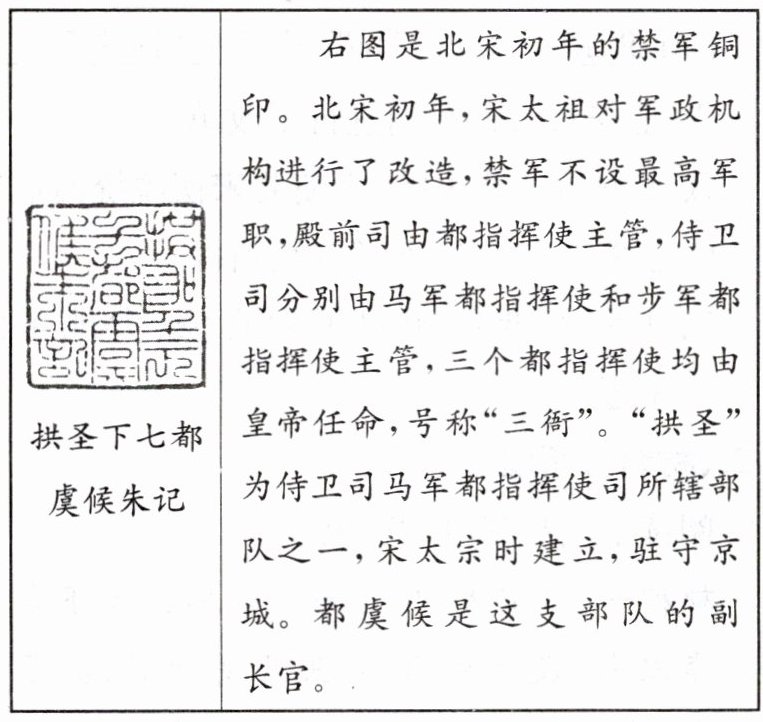 拱圣下七都
虞候朱记
右图是北宋初年的禁军铜
印。北宋初年，宋太祖对军政机
构进行了改造，禁军不设最高军
职，殿前司由都指挥使主管，侍卫
司分别由马军都指挥使和步军都
指挥使主管，三个都指挥使均由
皇帝任命，号称“三衙”。“拱圣”
为侍卫司马军都指挥使司所辖部
队之一，宋太宗时建立，驻守京
城。都虞候是这支部队的副
长官。